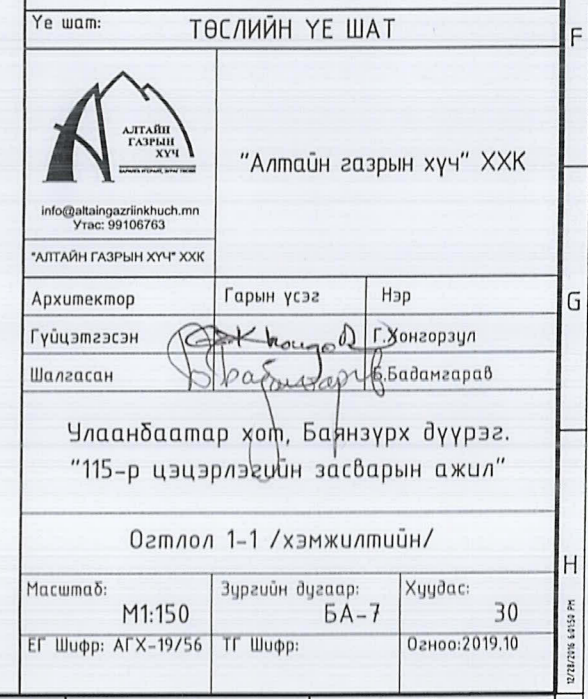 Үе шат: ТӨСЛИЙН ҮЕ ШАТ
F
АЛТАЙН
ГАЗРЫН
ХҮЧ
info@altaingazriinkhuch.mn
Утас: 99106763
"АЛТАЙН ГАЗРЫН ХҮЧ" ХХК
"Алтайн газрын хүч" ХХК
G
Архитектор Гарын үсэг Нэр
Гүйцэтгэсэн Г.Хонгорзул
Шалгасан Б.Бадамгарав
Улаанбаатар хот, Баянзүрх дүүрэг.
"115-р цэцэрлэгийн засварын ажил"
Огтлол 1-1 /хэмжилтийн/
H
Масштаб: Зургийн дугаар: Хуудас:
М1:150 БА-7 30
ЕГ Шифр: АГХ-19/56 ТГ Шифр: Огноо:2019.10
12/28/2016 6:01:50 PM